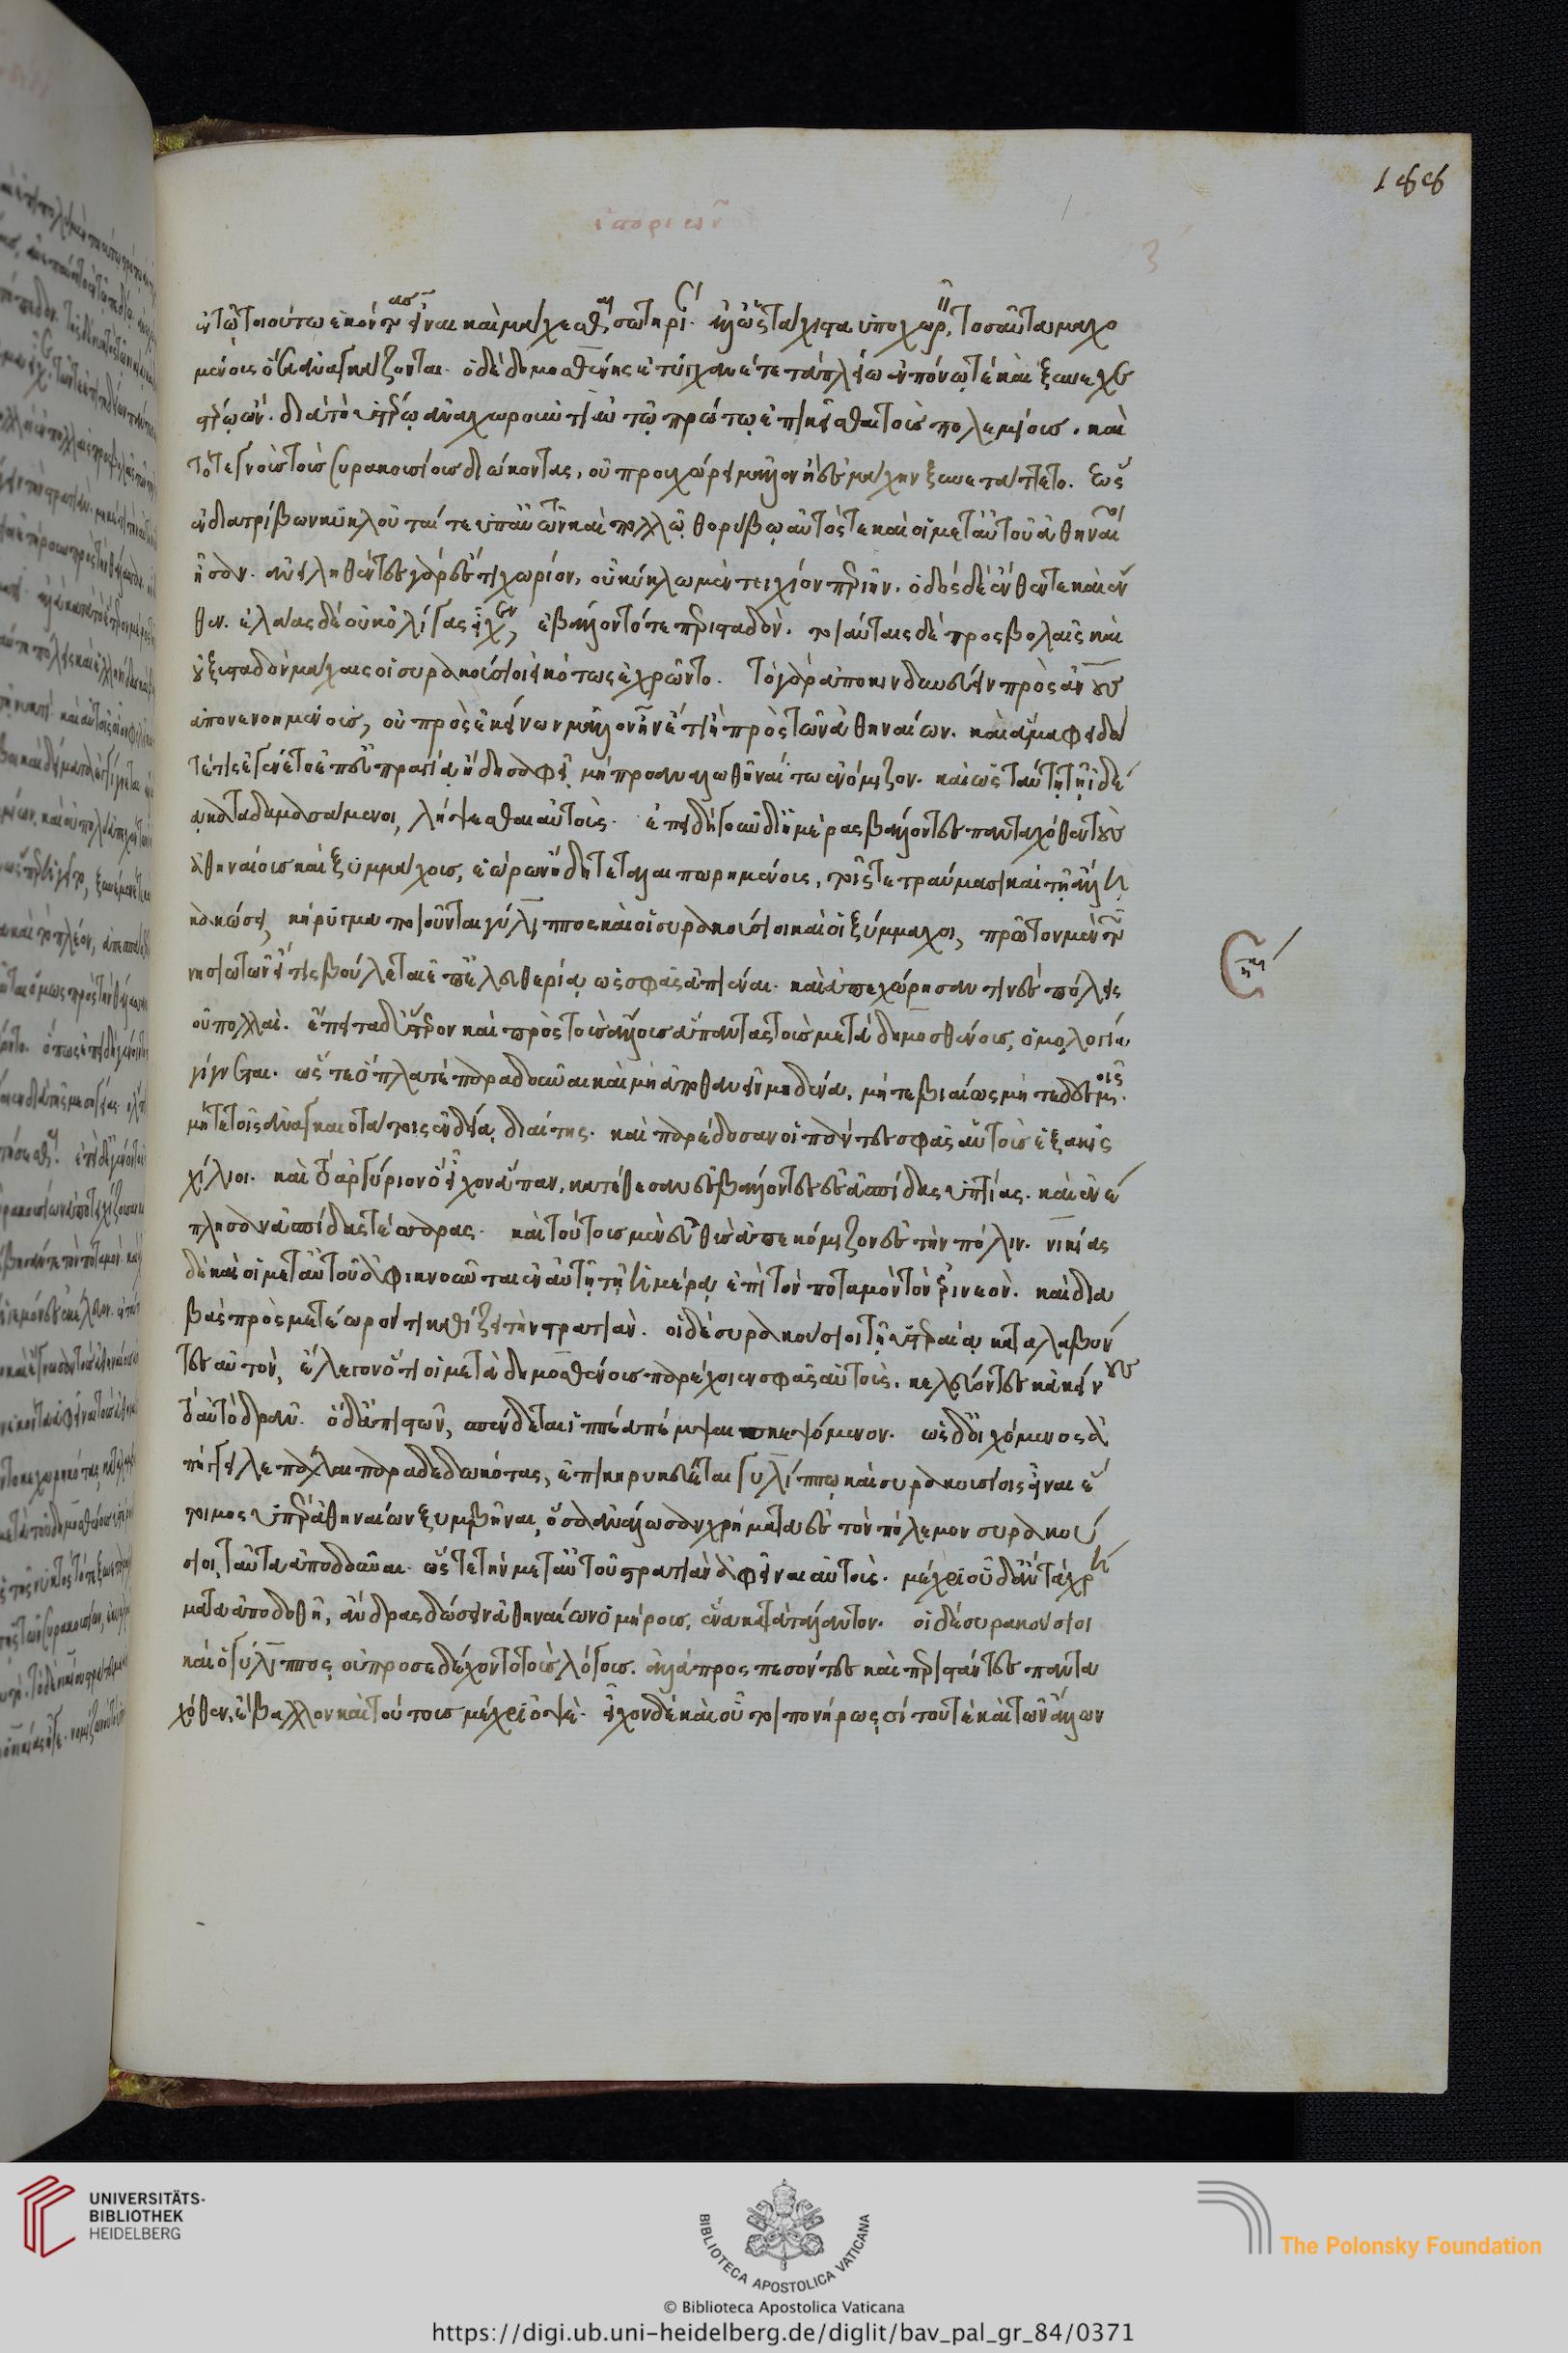 ἱστοριῶν
ζ
188
ἐν τῷ τοιούτω ἑκόντας εἶναι καὶ μάχεσθαι σωτηρί. ἀλλ' ὡς τάχιστα ὑποχωρεῖν, τοσαῦτα μαχο
μένους ὅσα ἀναγκάζονται. ὁ δὲ δημοσθένης ἐτύγχανέ τε τὰ πλείω ἐν πόνῳ τὲ καὶ ξυνεχεσ
τέρῳ ὤν. διὰ τὸ ὑστέρῳ ἀναχωροῦντι ἐν τῷ πρώτῳ ἐπικεῖσθαι τοὺς πολεμίους. καὶ
τότε γνοὺς τοὺς συρακουσίους διώκοντας, οὐ προυχώρει μᾶλλον ἢ ἐς μάχην ξυνετάττετο. ἕως
ἐνδιατρίβων κυκλοῦταί τε ὑπ' αὐτῶν καὶ πολλῷ θορύβῳ αὐτός τε καὶ οἱ μετ' αὐτοῦ ἀθηναῖοι
ἦσαν. ἀνειληθέντες γὰρ ἔς τι χωρίον, οὗ κύκλω μὲν τειχίον περιῆν. ὁδὸς δὲ ἔνθεν τε καὶ ἔν
θεν. ἐλαίας δὲ οὐκ ὀλίγας εἶχεν, ἐβάλλοντό τε περισταδόν. τοιαύταις δὲ προσβολαῖς καὶ
οὐ ξυσταδὸν μάχαις οἱ συρακούσιοι εἰκότως ἐχρῶντο. τὸ γὰρ ἀποκινδυνεύειν πρὸς ἀνους
ἀπονενοημένους, οὐ πρὸς ἐκείνων μᾶλλον ἦν ἔτι ἢ πρὸς τῶν ἀθηναίων. καὶ ἅμα φειδώ
τέ τις ἐγένετο ἐπ' εὐπραγίᾳ ἤδη σαφεῖ μὴ προαναλωθῆναί τω ἐνόμιζον. καὶ ὣς ταύτῃ τῇ ἰδέ
ᾳ καταδαμασάμενοι, λήψεσθαι αὐτούς. ἐπειδὴ γοῦν δι' ἡμέρας βάλλοντες πανταχόθεν τοὺς
ἀθηναίους καὶ ξυμμάχους, ἑώρων ἤδη τεταλαιπωρημένους, τοῖς τε τραύμασι καὶ τῇ ἄλλη
κακώσει, κήρυγμα ποιοῦνται γύλιππος καὶ οἱ συρακούσιοι καὶ οἱ ξύμμαχοι, πρῶτον μὲν τῶν
νησιωτῶν εἴ τις βούλεται ἐπ' ἐλευθερίᾳ ὡς σφᾶς ἀπιέναι. καὶ ἀπεχώρησαν τινὲς πόλεις
οὐ πολλαί. ἔπειτα δ' ὕστερον καὶ πρὸς τοὺς ἄλλους ἅπαντας τοὺς μετὰ δημοσθένους, ὁμολογία
γίγνεται. ὥς τε ὅπλα τὲ παραδοῦναι καὶ μὴ ἀποθανεῖν μηδένα, μήτε βιαίως μήτε δεσμοῖς.
μήτε τῆς ἀναγκαιοτάτης ἐνδείᾳ διαίτης. καὶ παρέδοσαν οἱ πάντες σφᾶς αὐτοὺς ἑξακις
χίλιοι. καὶ τὸ ἀργύριον ὃ εἶχον ἅπαν, κατέθεσαν ἐσβαλόντες ἐς ἀσπίδας ὑπτίας. καὶ ἐνέ
πλησαν ἀσπίδας τέσσαρας. καὶ τούτους μὲν εὐθὺς ἀπεκόμιζον ἐς τὴν πόλιν. νικίας
δὲ καὶ οἱ μετ' αὐτοῦ ἀφικνοῦνται ἐν αὐτῇ τῇ ἡμέρᾳ ἐπὶ τὸν ποταμὸν τὸν ἐρινεόν. καὶ δια
βὰς πρὸς μετέωρόν τι καθίζει τὴν στρατιάν. οἱ δὲ συρακούσιοι τῇ ὑστεραίᾳ καταλαβόν
τες αὐτόν, ἔλεγον ὅτι οἱ μετὰ δημοσθένους παρέχοιεν σφᾶς αὐτούς. κελεύοντες κἀκεῖνους
τὸ αὐτὸ δρᾶν. ὁ δ' ἀπιστῶν, σπένδεται ἱππέα πέμψαι σκεψόμενον. ὡς δ' οἰχόμενος ἀ
πήγγειλε πάλαι παραδεδωκότας, ἐπικηρυκεύεται γυλίππῳ καὶ συρακουσίοις εἶναι ἕ
τοιμος ὑπὲρ ἀθηναίων ξυμβῆναι, ὅσα ἀνάλωσαν χρήματα ἐς τὸν πόλεμον συρακού
σιοι, ταῦτα ἀποδοῦναι. ὥς τε τὴν μετ' αὐτοῦ στρατιὰν ἀφεῖναι αὐτούς. μέχρι οὗ δ' ἂν τὰ χρή
ματα ἀποδοθῆ, ἄνδρας δώσειν ἀθηναίων ὁμήρους, ἕνα κατὰ τάλαντον. οἱ δὲ συρακούσιοι
καὶ ὁ γύλιππος, οὐ προσεδέχοντο τοὺς λόγους. ἀλλὰ προσπεσόντες καὶ περιστάντες παντα
χόθεν, ἔβαλλον καὶ τούτους μέχρι ὀψέ. εἶχον δὲ καὶ οὗτοι πονήρως, σίτου τὲ καὶ τῶν ἄλλων
UNIVERSITÄTS-
BIBLIOTHEK
HEIDELBERG
BIBLIOTECA APOSTOLICA VATICANA
The Polonsky Foundation
© Biblioteca Apostolica Vaticana
https://digi.ub.uni-heidelberg.de/diglit/bav_pal_gr_84/0371